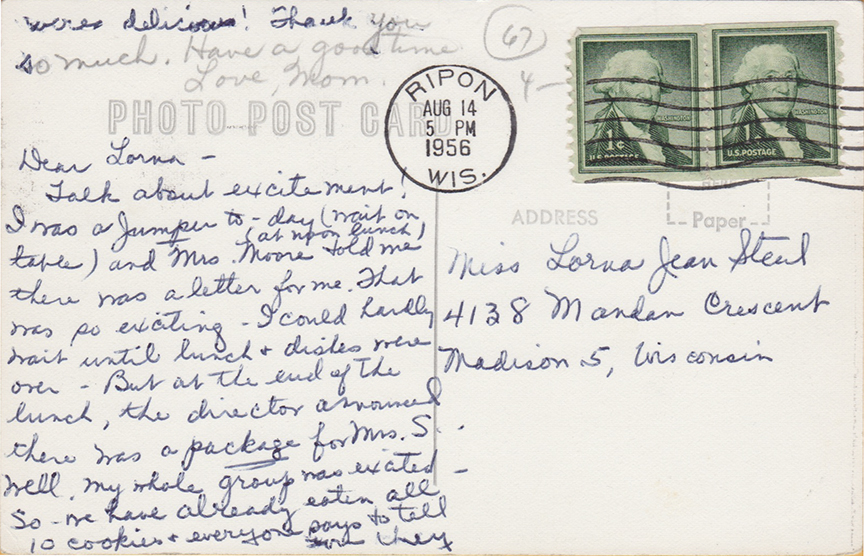 were delicious! Thank you
so much. Have a good time
Love, Mom.
67
4—
RIPON
AUG 14
5 PM
1956
WIS.
WASHINGTON
1¢
U.S. POSTAGE
WASHINGTON
1
U.S. POSTAGE
PHOTO POST CARD
ADDRESS
Paper
Dear Lorna —
Talk about excitement!
I was a Jumper to-day (wait on
table) (at noon lunch) and Mrs. Moore told me
there was a letter for me. That
was so exciting - I could hardly
wait until lunch + dishes were
over - But at the end of the
lunch, the director announced
there was a package for Mrs. S.
Well, my whole group was excited —
So - we have already eaten all
10 cookies + everyone says to tell
you they
Miss Lorna Jean Steul
4138 Mandan Crescent
Madison 5, Wisconsin